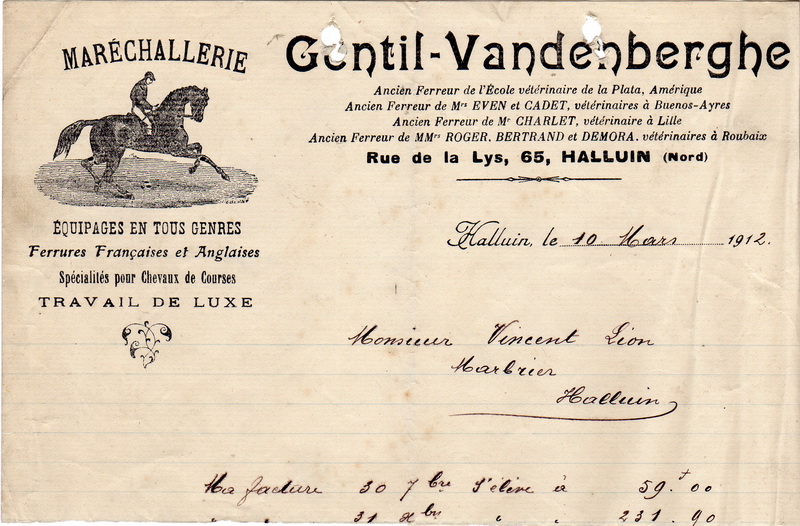 MARÉCHALLERIE
Gentil-Vandenberghe
Ancien Ferreur de l'École vétérinaire de la Plata, Amérique
Ancien Ferreur de Mrs EVEN et CADET, vétérinaires à Buenos-Ayres
Ancien Ferreur de Mr CHARLET, vétérinaire à Lille
Ancien Ferreur de MMrs ROGER, BERTRAND et DEMORA, vétérinaires à Roubaix
Rue de la Lys, 65, HALLUIN (Nord)
ÉQUIPAGES EN TOUS GENRES
Ferrures Françaises et Anglaises
Spécialités pour Chevaux de Courses
TRAVAIL DE LUXE
Halluin, le 10 Mars 1912.
Monsieur Vincent Lion
Marbrier
Halluin
Ma facture 30 7bre s'élève à 59f 00
" " 31 Xbre " " 231.90